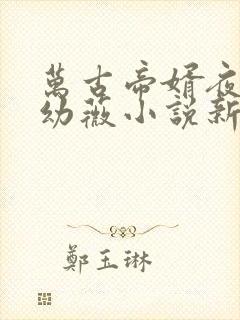 萬古帝婿夜
幼薇小說新
鄭玉琳